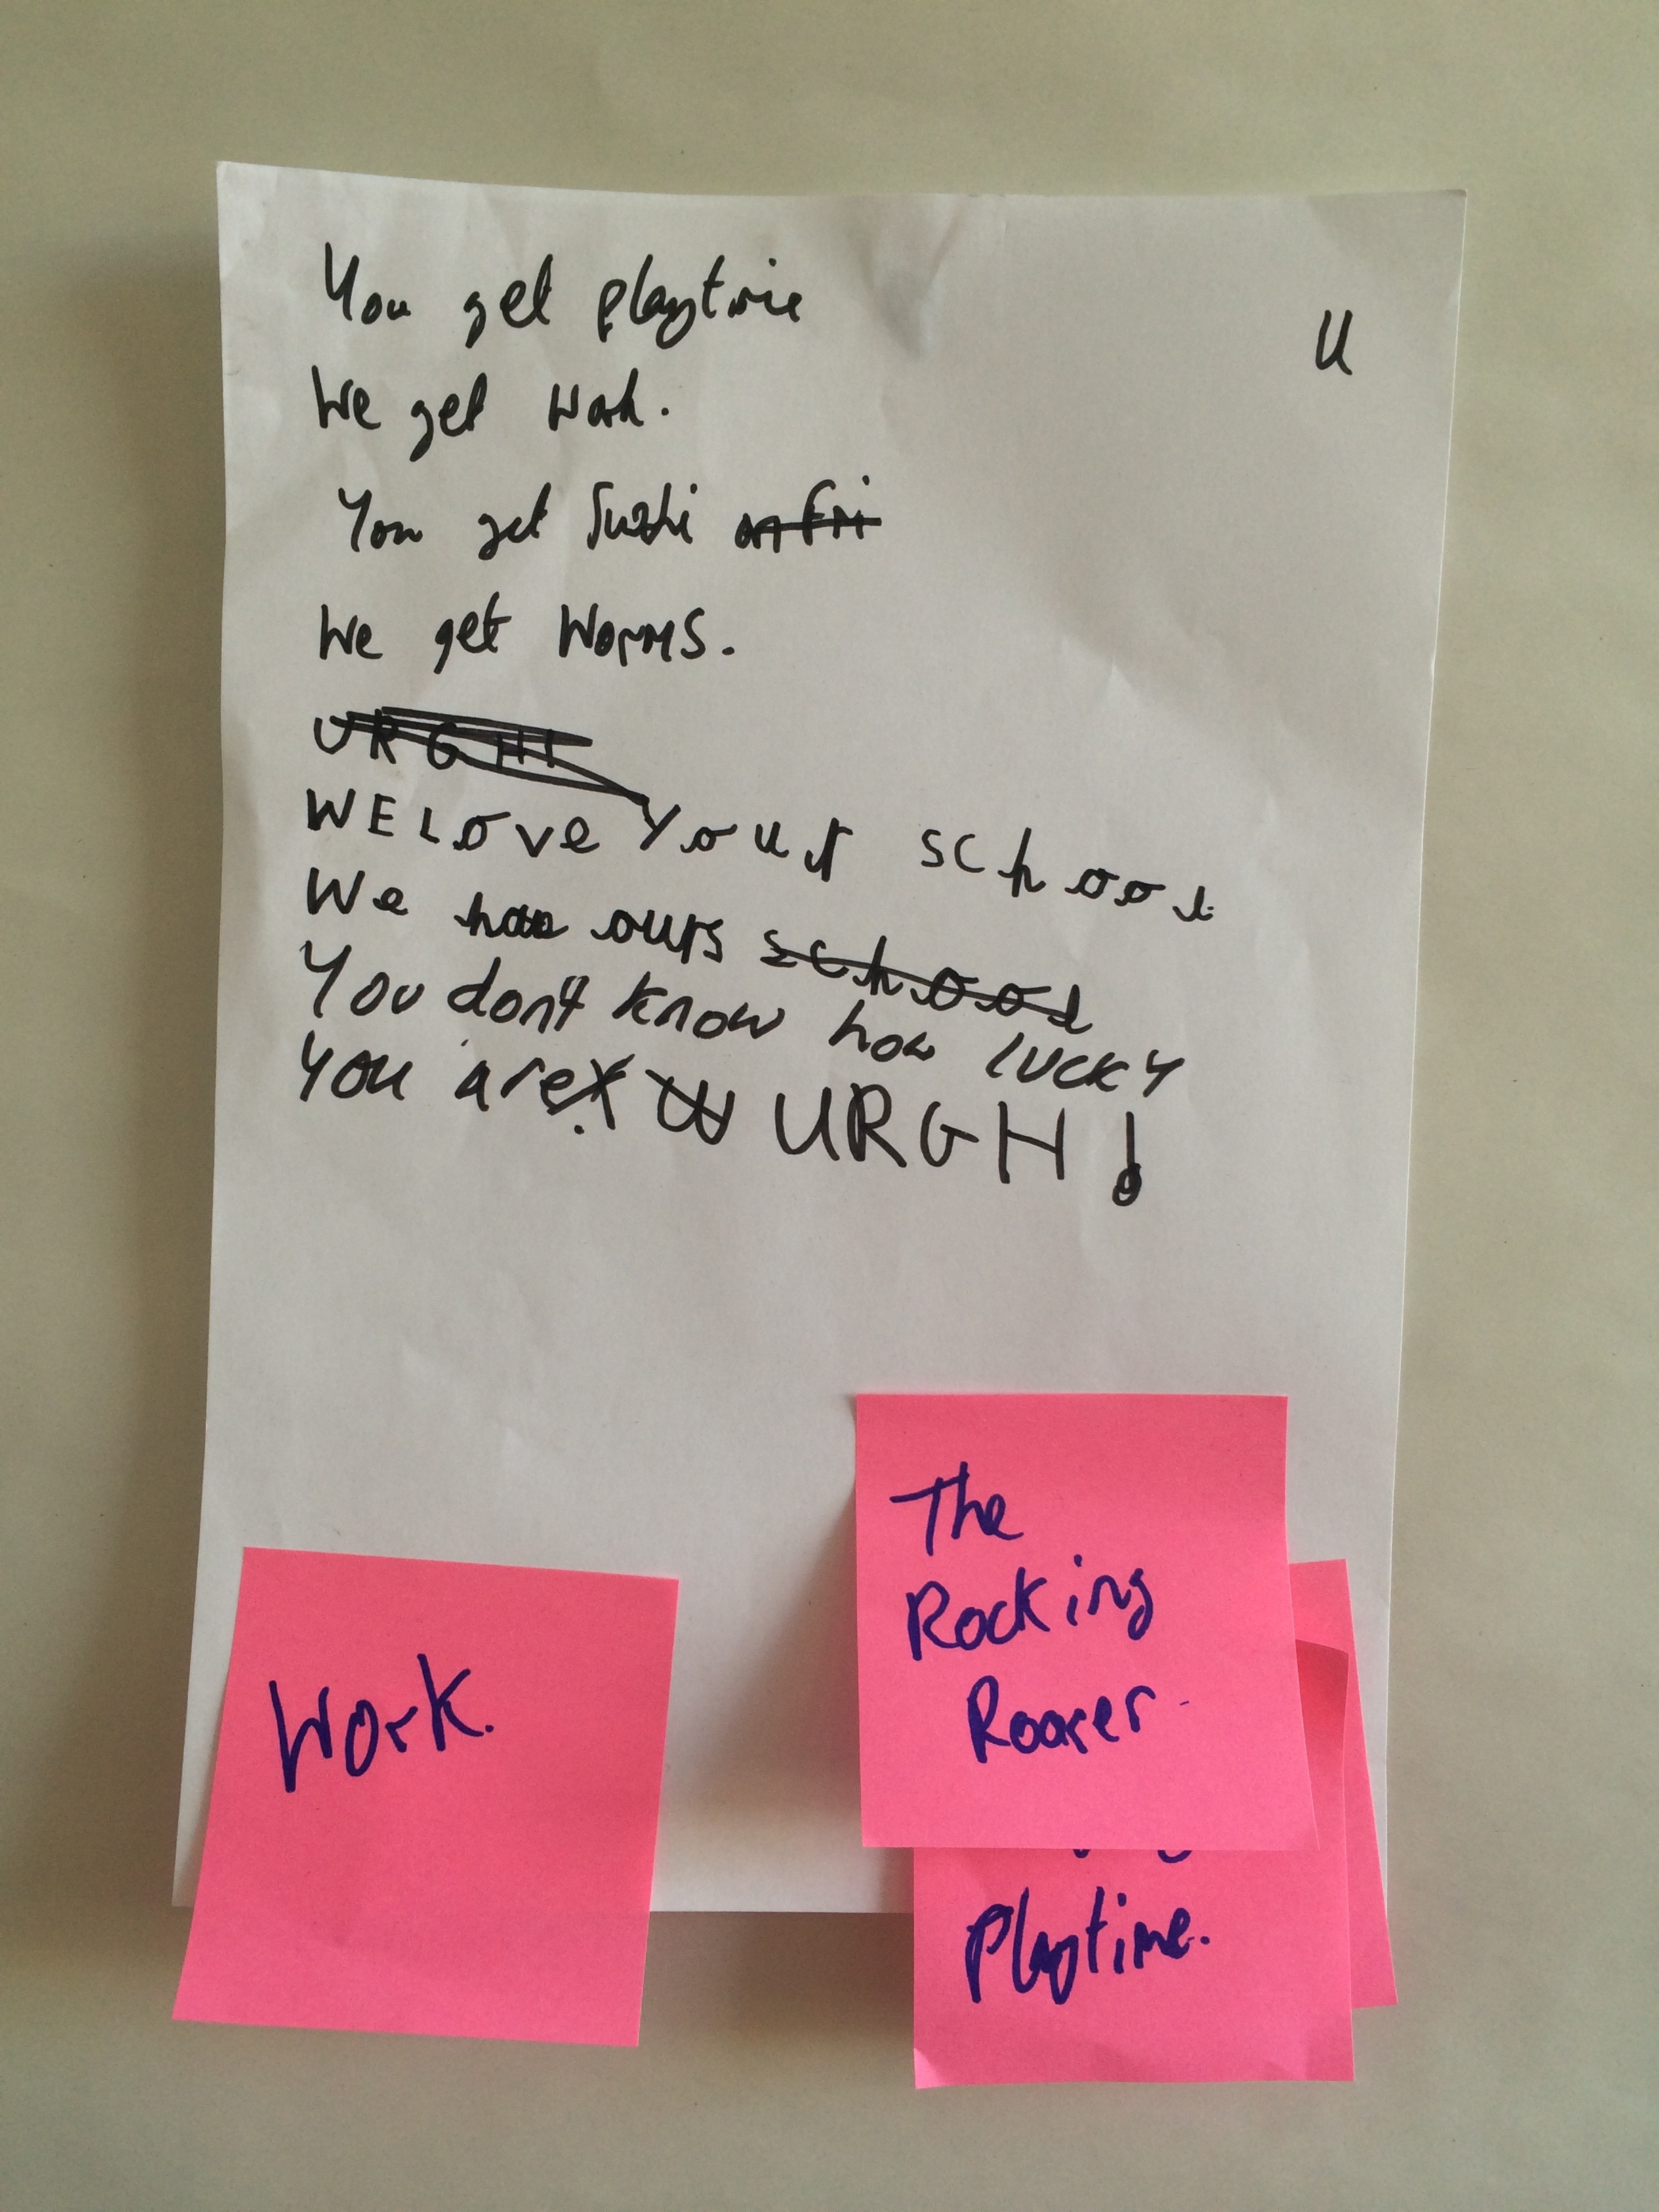 You get playtime
U
We get work.
You get Sushi on Fri
We get Worms.
URGH!
WE Love Your school
We hate ours school
You don't know how lucky
You are URGH!
The
Rocking
Roarer
Work.
Playtime.